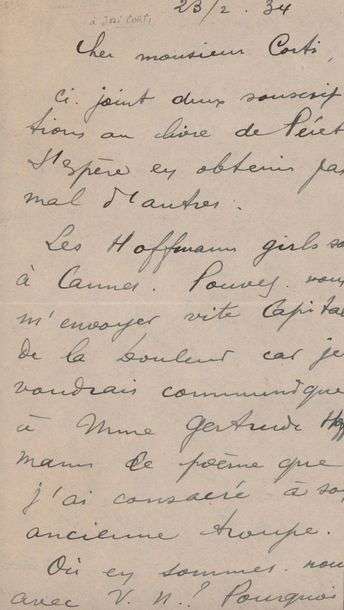 23/2. 34
à José Corti
Cher monsieur Corti,
ci. joint deux souscrip
tions au livre de Péret
J'espère en obtenir pas
mal d'autres.
Les Hoffmann girls so
à Cannes. Pouvez. vous
m'envoyer vite Capitale
de la douleur car je
voudrais communique
à Mme Gertrude Hoff
mann le poème que
j'ai consacré à son
ancienne troupe.
Où en sommes. nous
avec V. N.? Pourquoi